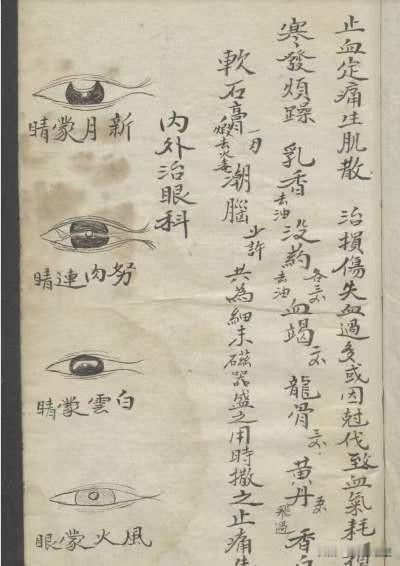 止血定痛生肌散 治損傷失血過多或因尅伐致血氣耗損
寒發煩躁 乳香去油没葯去油各三錢血竭二錢龍骨三錢黄丹飛過香白
軟石膏煅去火毒一刃潮腦少許共為細末磁器盛之用時撒之止痛生
內外治眼科
新月蒙睛
努肉連睛
白雲蒙睛
風火蒙眼